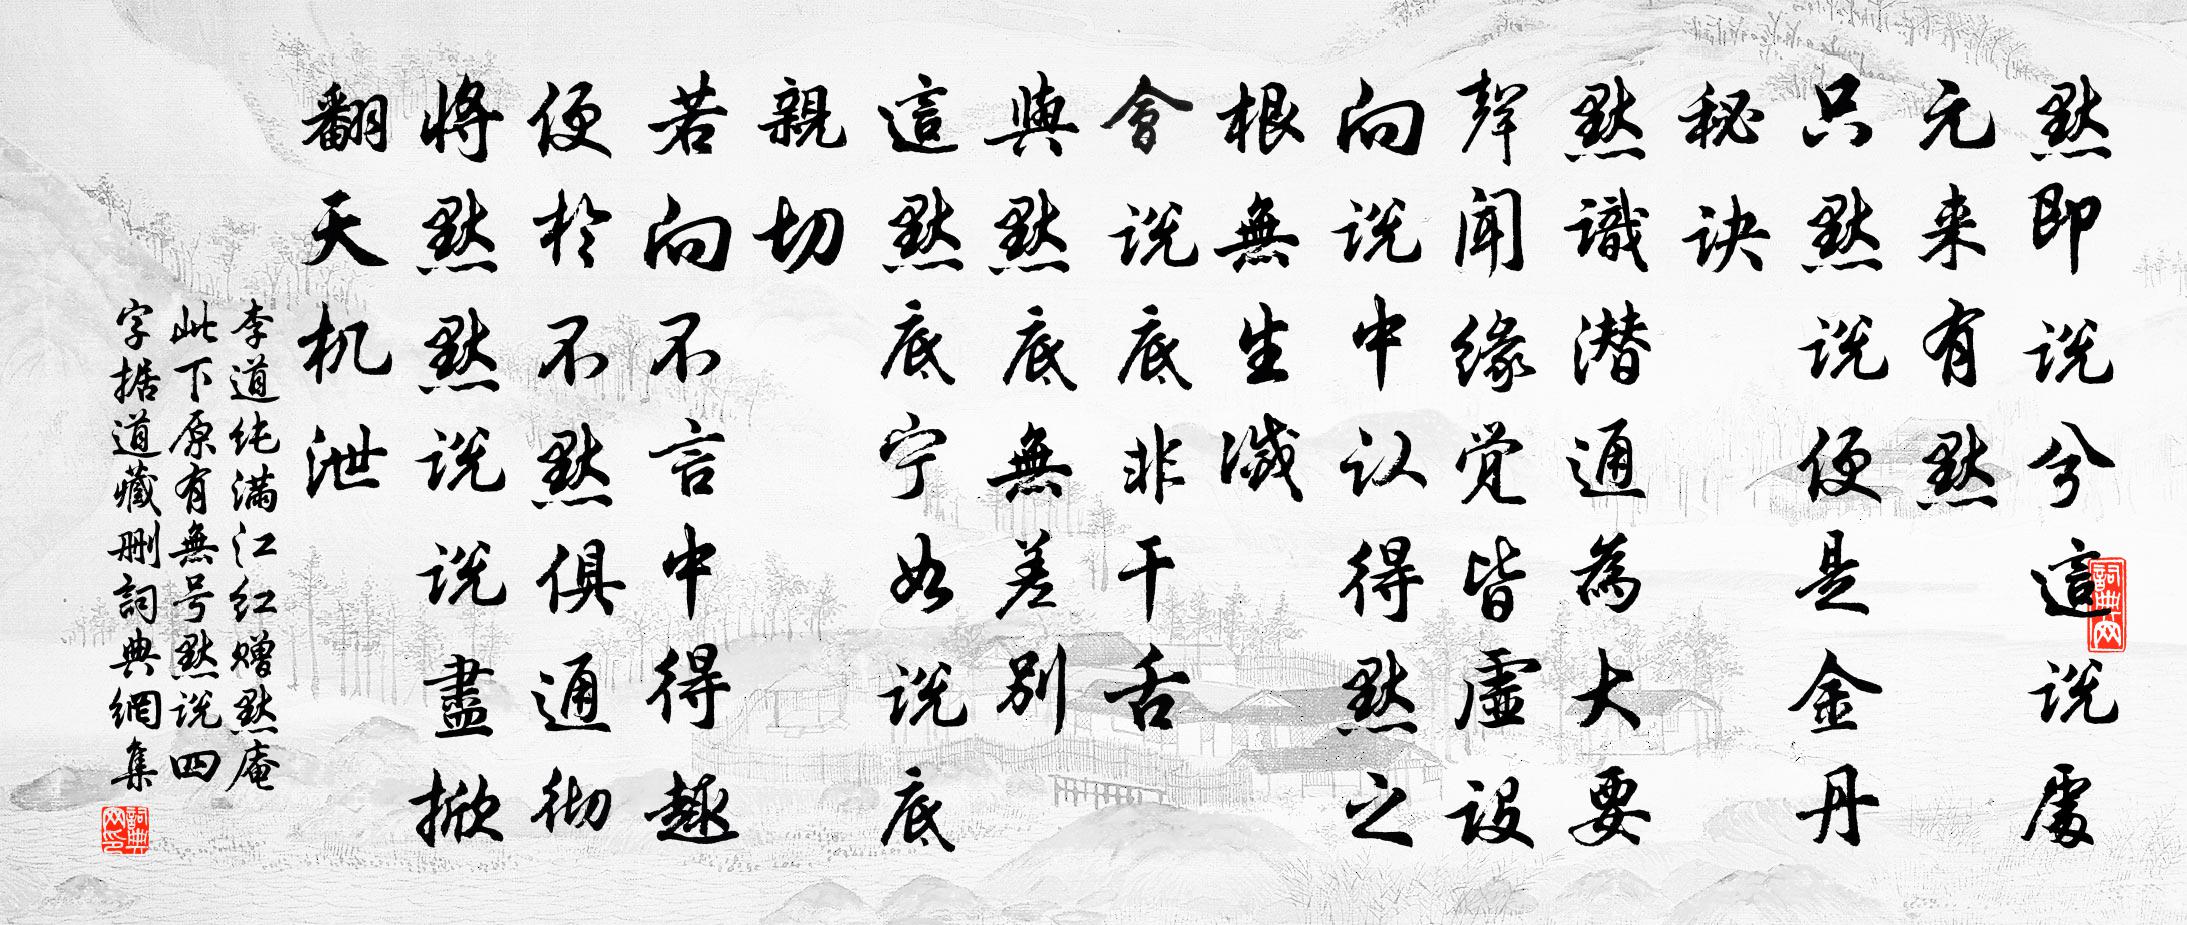 默即说兮這说處
元来有默
只默说便是金丹
秘诀
默識潜通為大要
聲闻缘觉皆虛设
向说中认得默之
根無生滅
會说底非干舌
與默底無差别
這默底宁如说底
親切
若向不言中得趣
便於不默俱通彻
将默默说说盡掀
翻天机泄
李道纯满江红赠默庵
此下原有無号默说四
字据道藏删詞典網集
詞典网
詞典网印